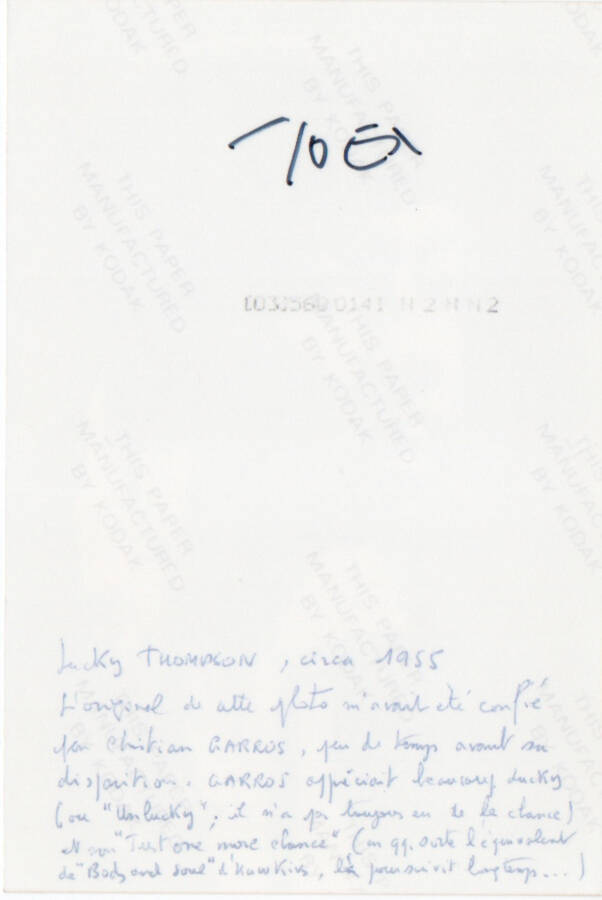 THIS PAPER
MANUFACTURED
BY KODAK
[03]560 0141 N 2 N N 2
Lucky THOMPSON, circa 1955
L'original de cette photo m'avait été confié
par Christian GARROS, peu de temps avant sa
disparition. GARROS appréciait beaucoup Lucky
(ou "Unlucky", il n'a pas toujours eu de la chance)
et son "Just one more chance" (en qq. sorte l'équivalent
de "Body and soul" d'Hawkins, poursuivit longtemps...)